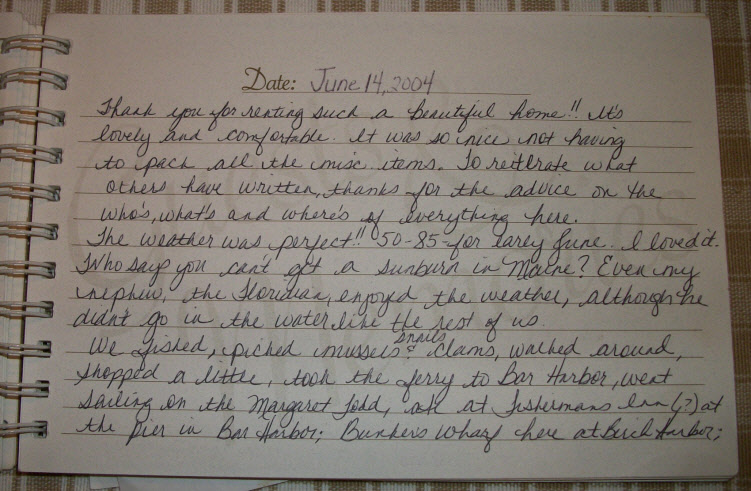 Date: June 14, 2004
Thank you for renting such a beautiful home!! It's
lovely and comfortable. It was so nice not having
to pack all the misc. items. To reitErate what
others have written, thanks for the advice on the
who's, what's and where's of everything here.
The weather was perfect!! 50-85-for earey June. I loved it.
Who says you can't get a sunburn in Maine? Even my
nephew, the Floridian, enjoyed the weather, although he
didn't go in the water like the rest of us.
We fished, picked mussels & snails clams, walked around,
shopped a little, took the ferry to Bar Harbor, went
sailing on the Margaret Todd, ate at Fishermans Inn (?) at
the pier in Bar Harbor; Bunker's Wharf here at Birch Harbor;